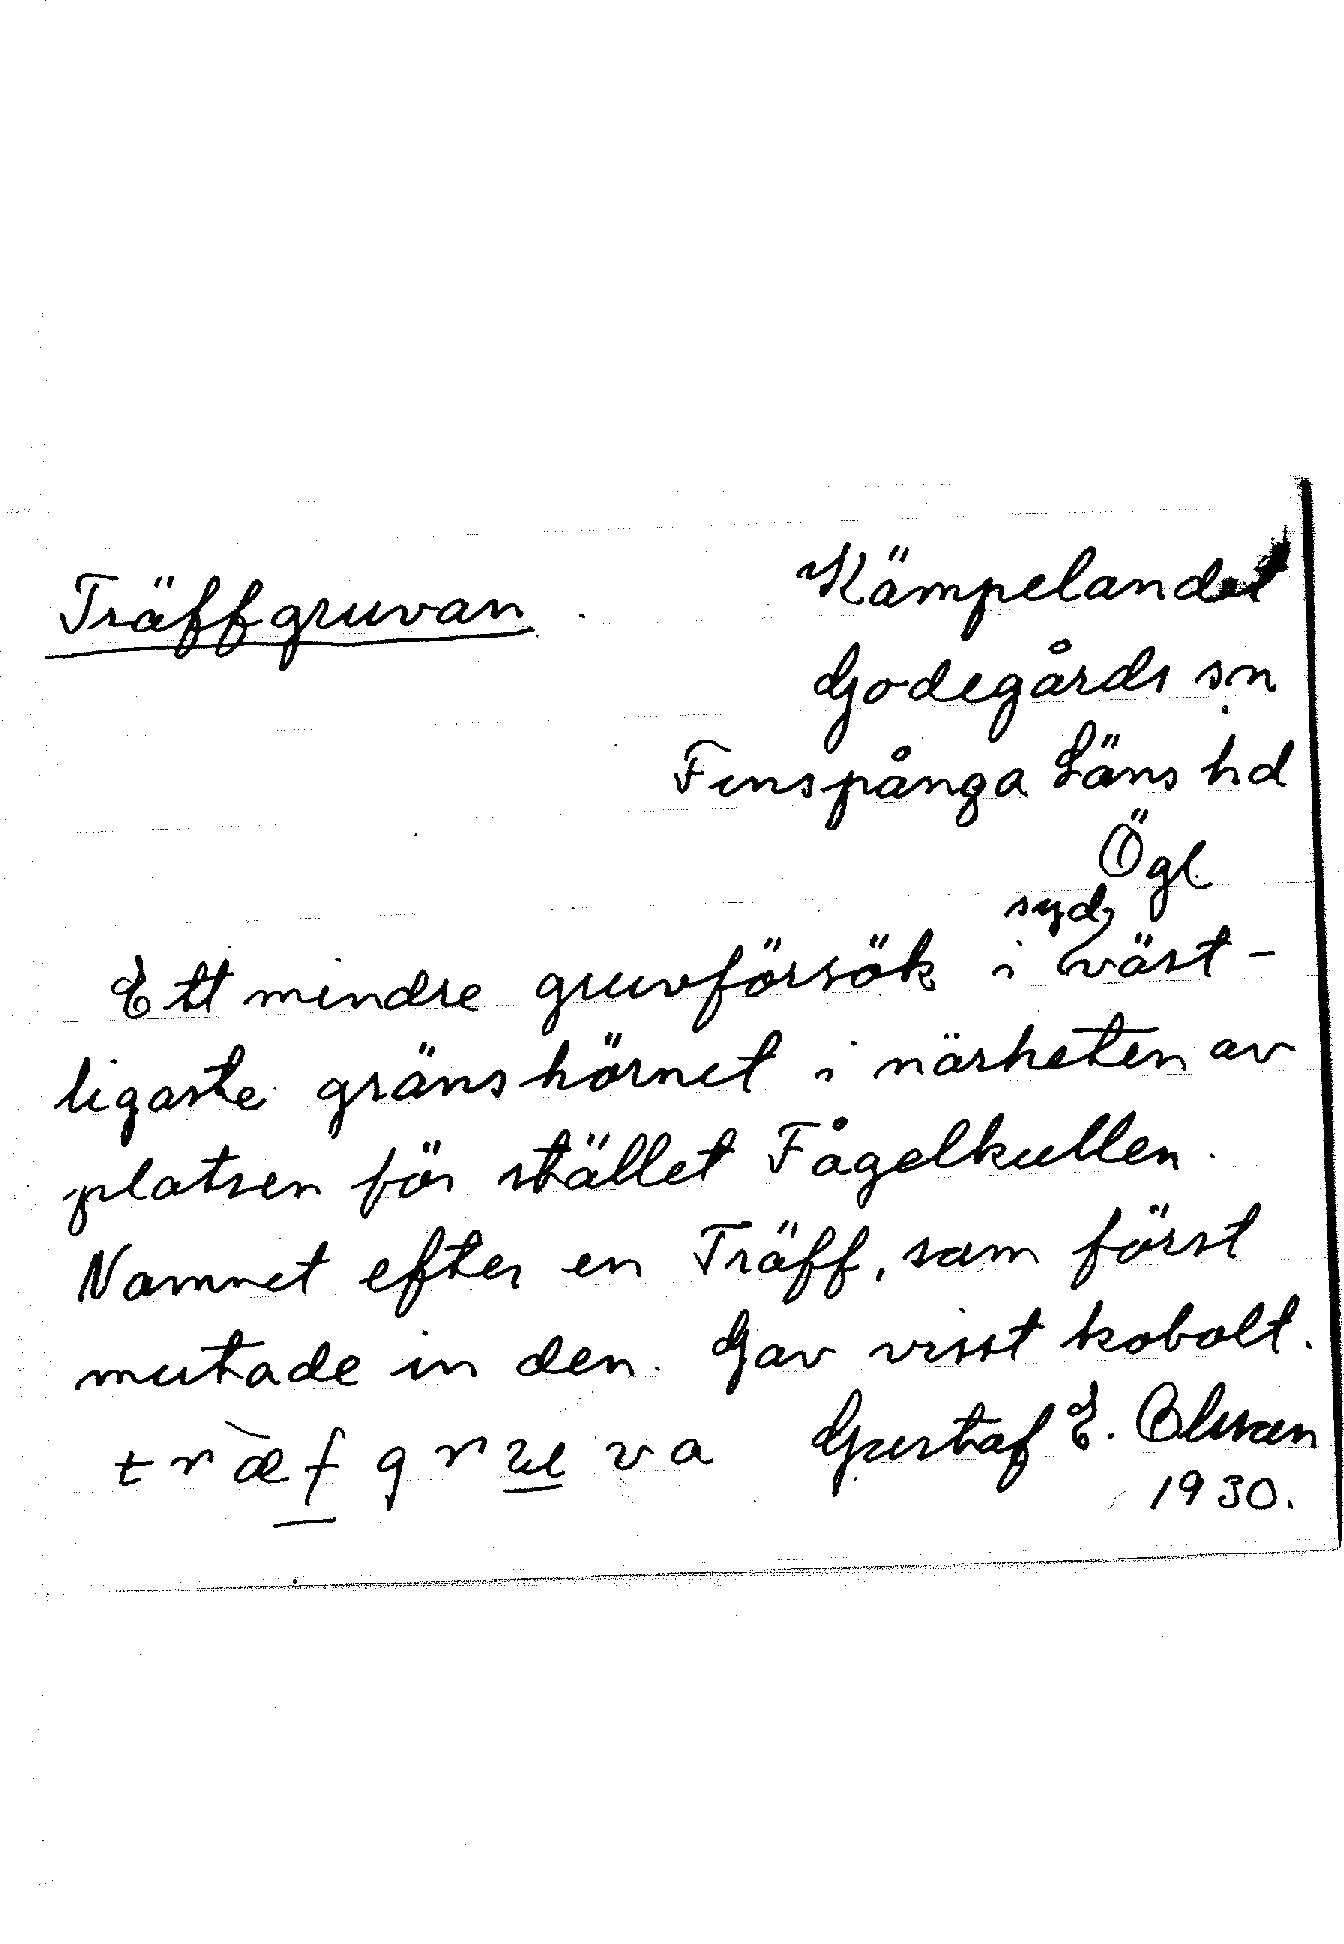 Träffgruvan
Kämpelandet
Godegårds sn
Finspånga Läns hd
Ögl
Ett mindre gruvförsök i sydväst-
ligaste gränshörnet i närheten av
platsen för stället Fågelkullen.
Namnet efter en Träff, som först
mutade in den. Gav visst kobolt.
træ̀f gruva Gustaf E.
1930.